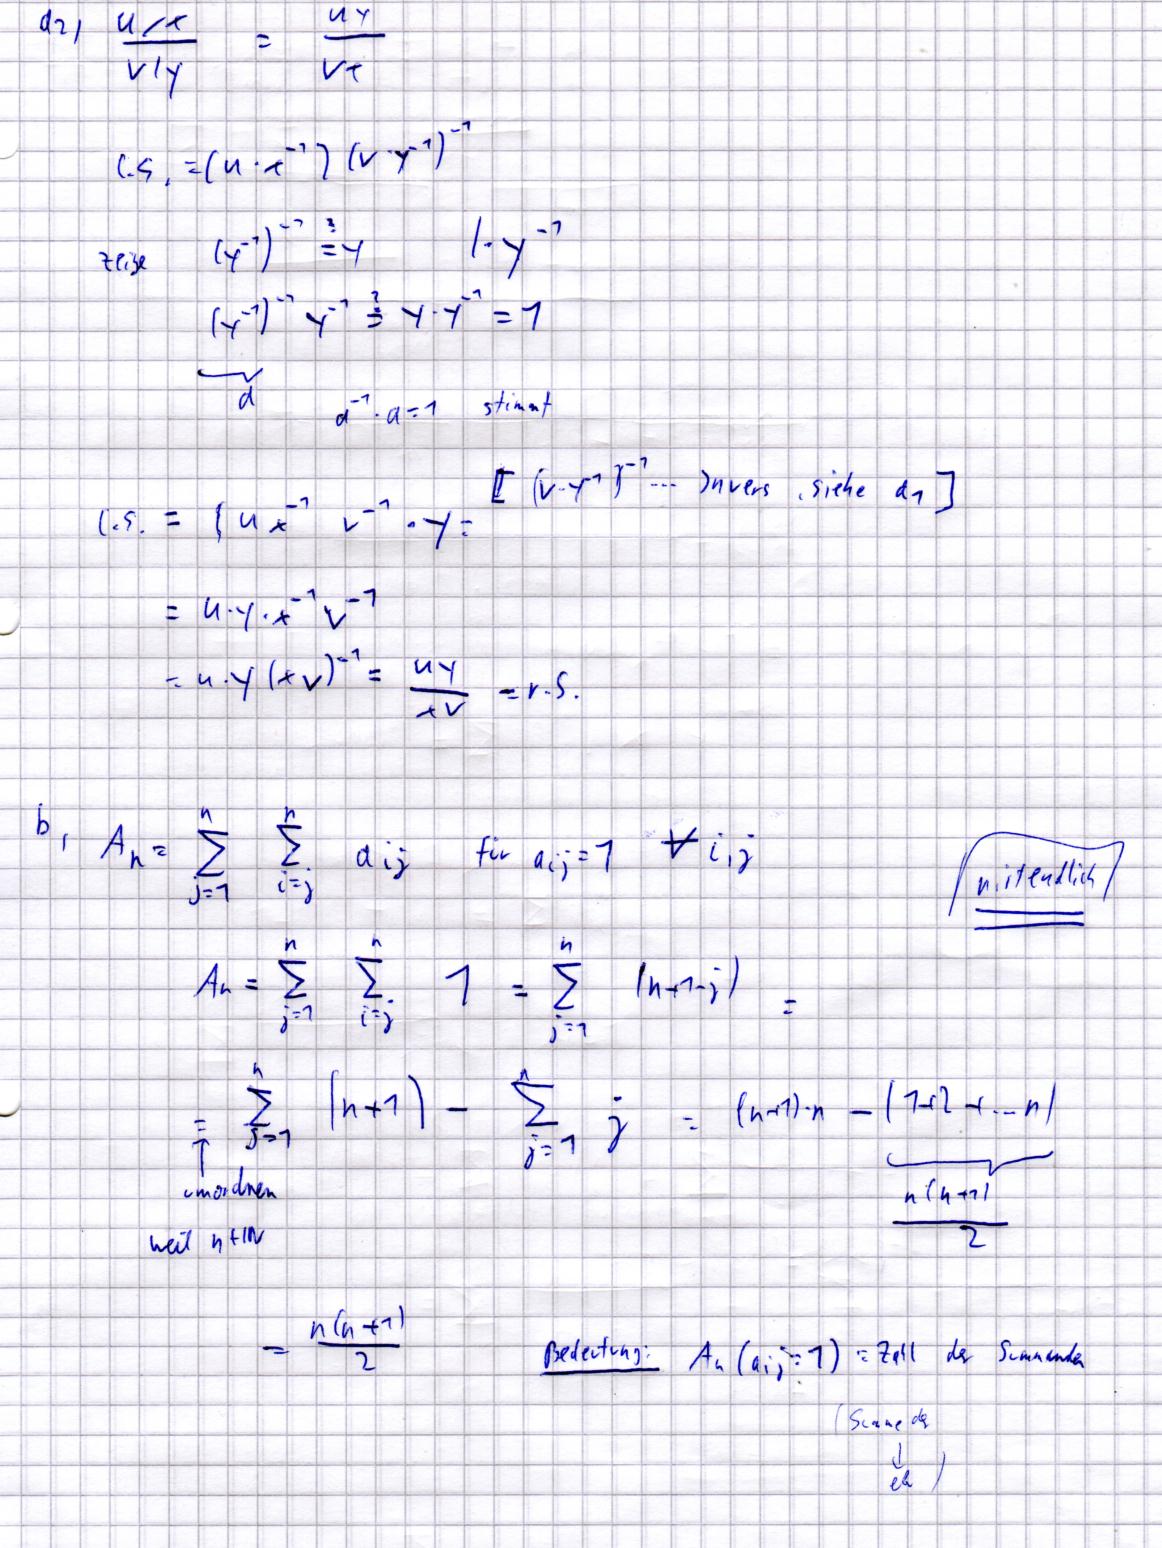 a2) (u/x)/(v/y) = (uy)/(vx)
l.S. = (u · x⁻¹) (v · y⁻¹)⁻¹
zeige (y⁻¹)⁻¹ ≟ y | · y⁻¹
(y⁻¹)⁻¹ y⁻¹ ≟ y · y⁻¹ = 1
a
a⁻¹ · a = 1 stimmt
[ (v · y⁻¹)⁻¹ ... Invers, siehe a1 ]
l.S. = ( u x⁻¹ v⁻¹ · y =
= u · y · x⁻¹ v⁻¹
= u · y (x v)⁻¹ = (uy)/(xv) = r.S.
b, Aₙ = ∑_{j=1}^{n} ∑_{i=j}^{n} a_{ij} für a_{ij} = 1 ∀ i,j
n ist endlich
Aₙ = ∑_{j=1}^{n} ∑_{i=j}^{n} 1 = ∑_{j=1}^{n} (n+1-j) =
= ∑_{j=1}^{n} (n+1) - ∑_{j=1}^{n} j = (n+1) · n - (1+2+...n)
umordnen n(n+1)/2
weil n ∈ ℕ
= n(n+1)/2 Bedeutung: Aₙ (a_{ij} = 1) = Zahl der Summanden
(Summe der
↓
)